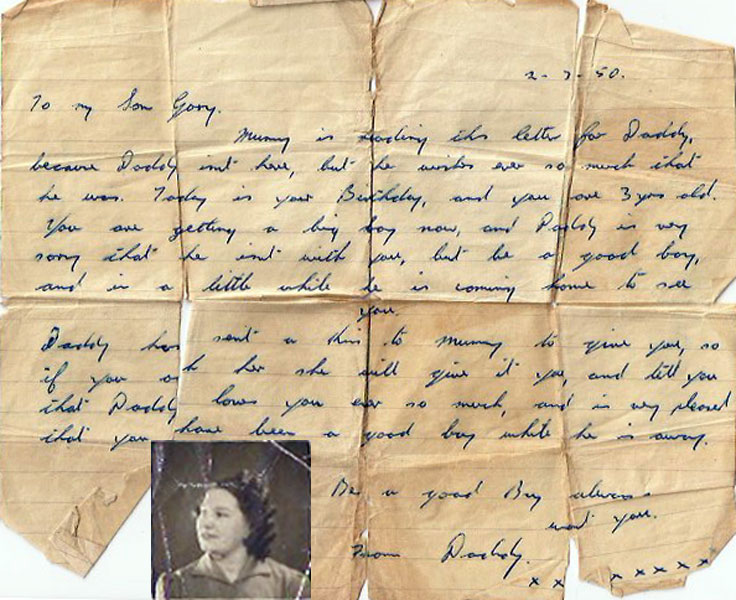 2-7-50.
To my Son Gary.
Mummy is reading this letter for Daddy,
because Daddy isnt here, but he wishes ever so much that
he was. Today is your Birthday, and you are 3 yrs old.
You are getting a big boy now, and Daddy is very
sorry that he isnt with you, but be a good boy,
and in a little while he is coming home to see
you.
Daddy has sent a this to Mummy to give you, so
if you ask her she will give it you, and tell you
that Daddy loves you ever so much, and is very pleased
that you have been a good boy while he is away.
Be a good Boy always
want you.
From Daddy.
x x x x x x x